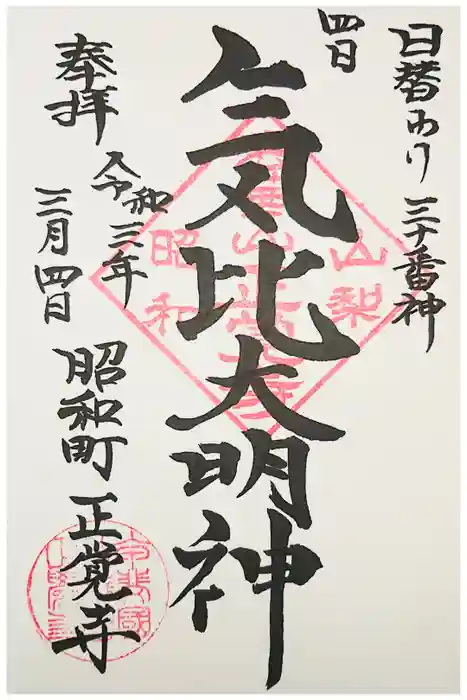 日替わり 三十番神
四日
気比大明神
奉拝
令和三年
三月四日
昭和町 正覚寺
山梨
昭和